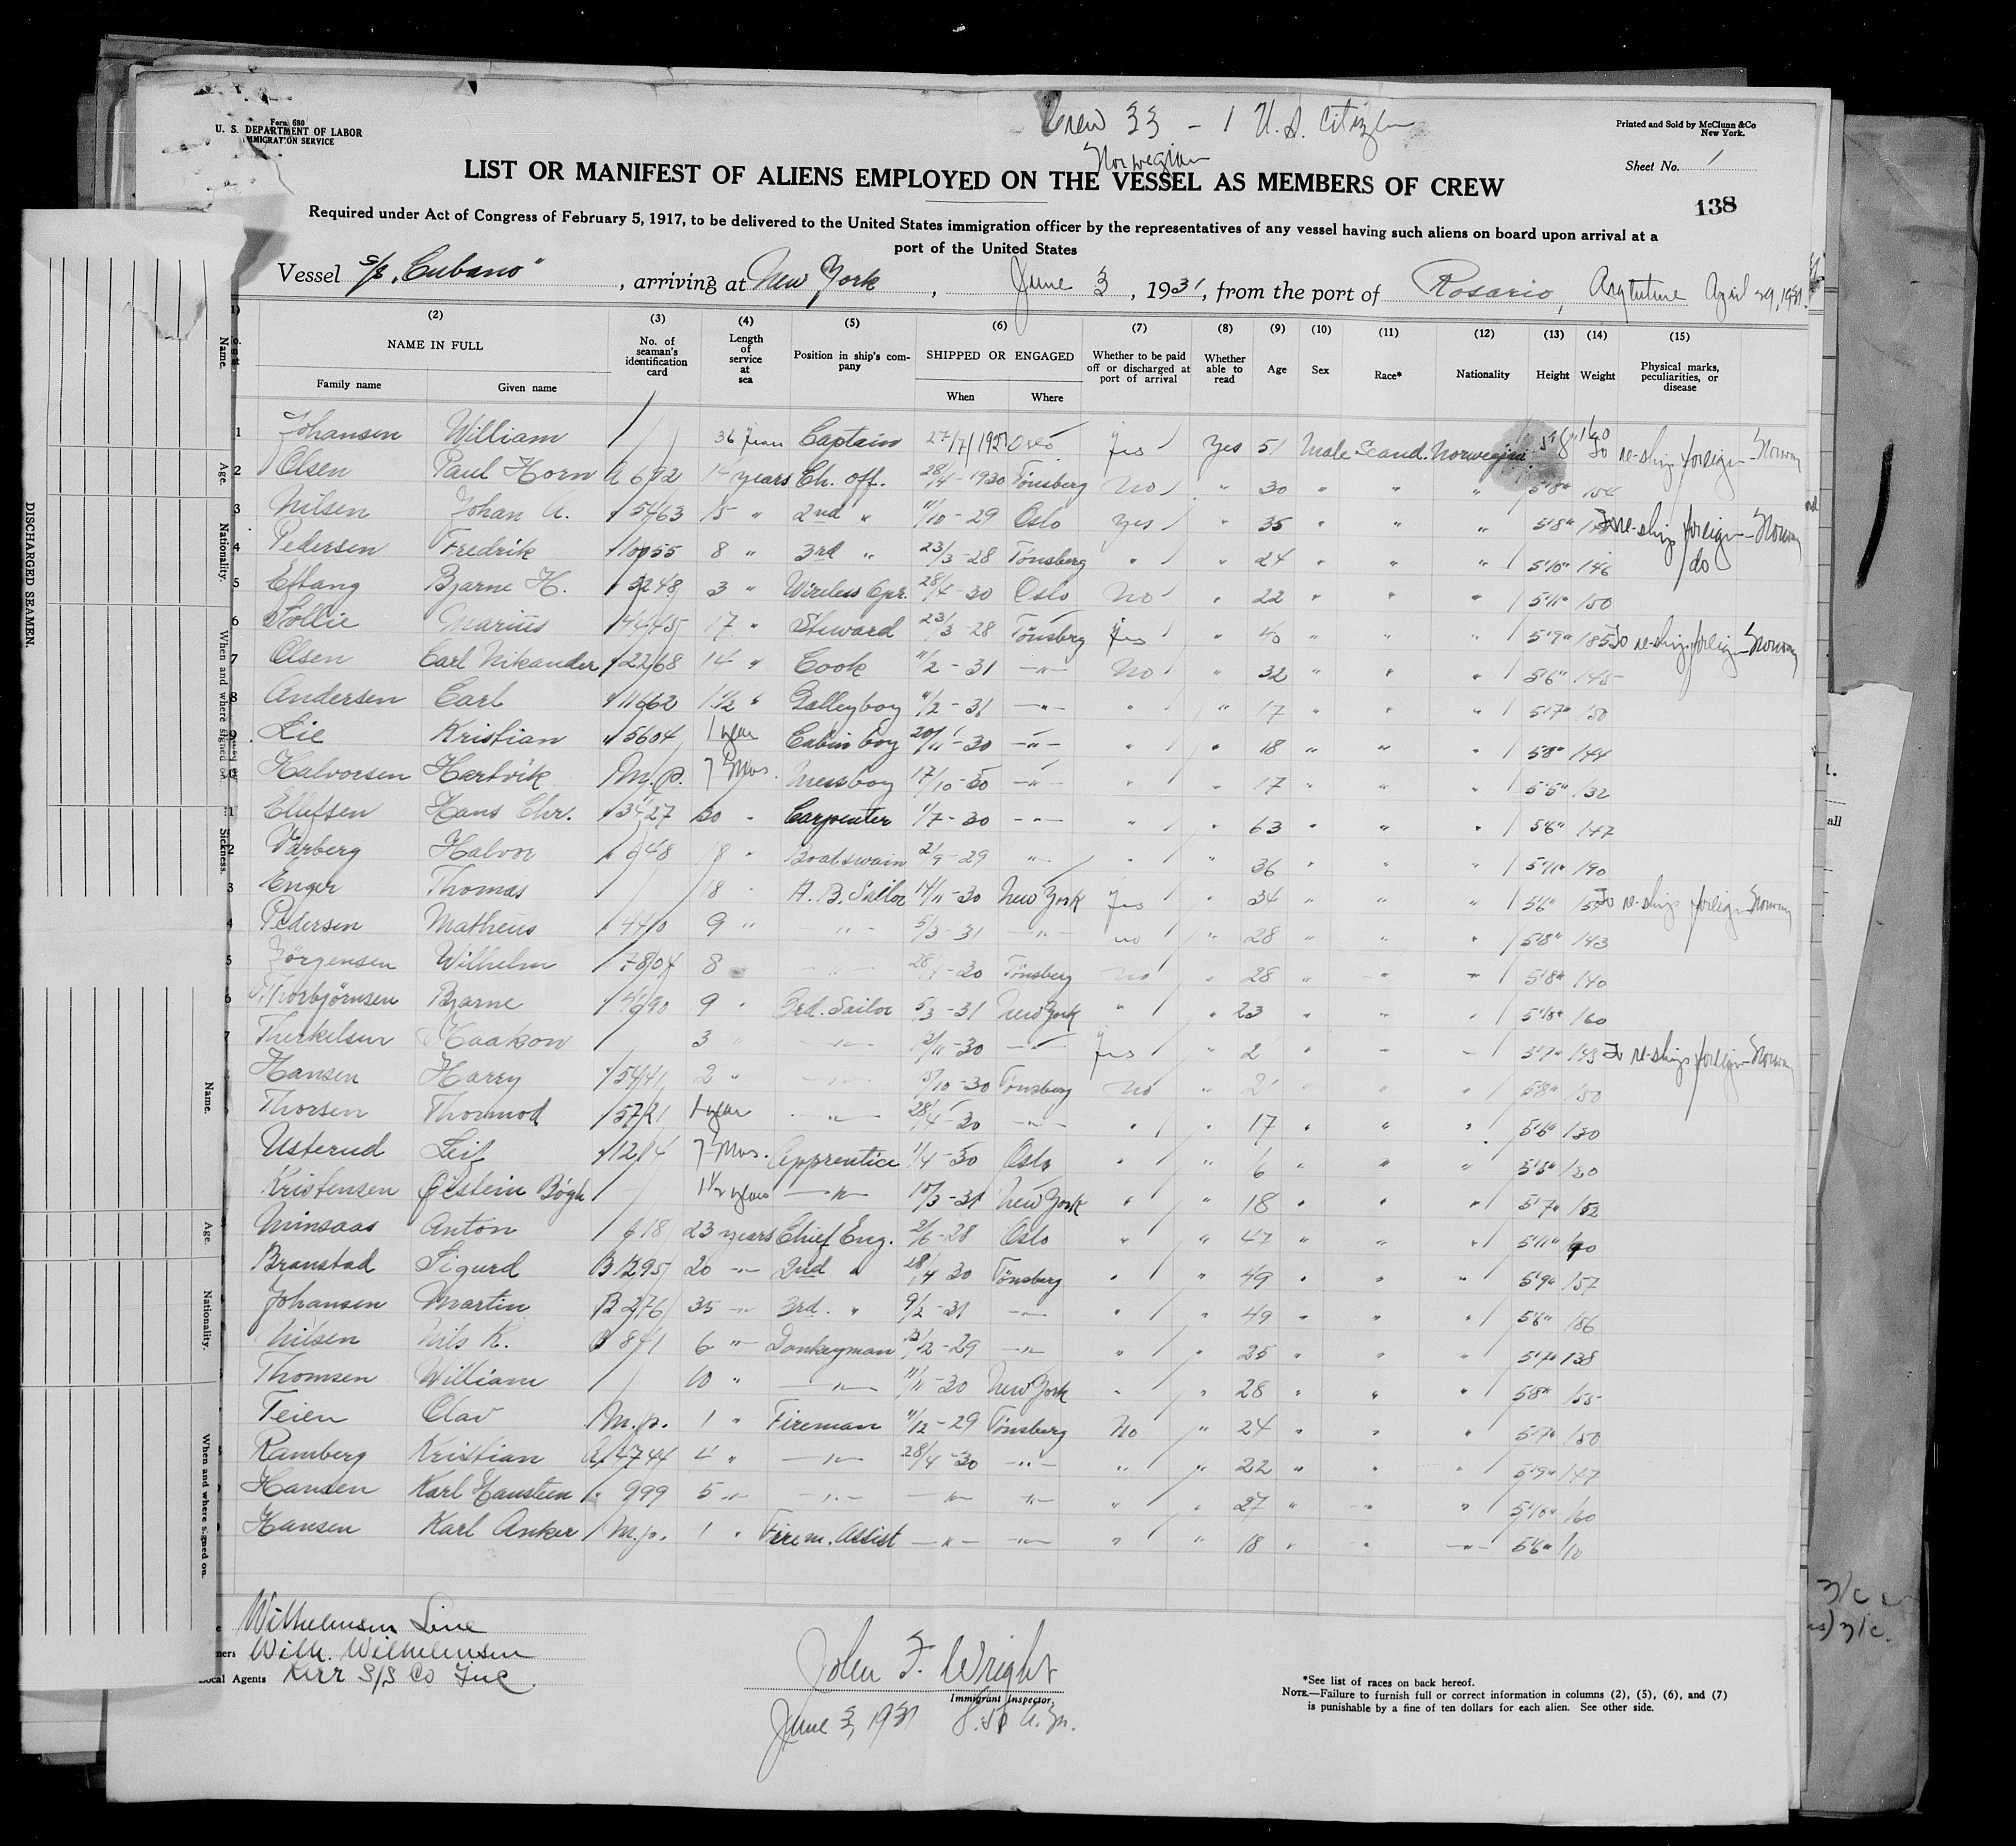 Form 680
U. S. DEPARTMENT OF LABOR
IMMIGRATION SERVICE
Crew 33 - 1 U. S. Citizen
Printed and Sold by McClunn & Co
New York.
Sheet No. 1
Norwegian
LIST OR MANIFEST OF ALIENS EMPLOYED ON THE VESSEL AS MEMBERS OF CREW
138
Required under Act of Congress of February 5, 1917, to be delivered to the United States immigration officer by the representatives of any vessel having such aliens on board upon arrival at a
port of the United States
Vessel S/S "Cubano", arriving at New York, June 3, 1931, from the port of Rosario, Argentine April 29, 1931.
(2) (3) (4) (5) (6) (7) (8) (9) (10) (11) (12) (13) (14) (15)
NAME IN FULL No. of seaman's identification card Length of service at sea Position in ship's company SHIPPED OR ENGAGED Whether to be paid off or discharged at port of arrival Whether able to read Age Sex Race* Nationality Height Weight Physical marks, peculiarities, or disease
Family name Given name When Where
1 Johansen William 36 years Captain 27/7 Oslo Yes Yes 51 Male Scand. Norwegian 5'8" 160 To re-ship foreign - Norway
2 Olsen Paul Horn A 692 14 years Ch. off. 28/4-1930 Tönsberg No " 30 " " " 5'8" 154
3 Nilsen Johan A. " 5463 15 " 2nd " 11/10-29 Oslo Yes " 35 " " " 5'8" To re-ship foreign - Norway
4 Pedersen Fredrik " 10955 8 " 3rd " 23/3-28 Tönsberg " " 24 " " " 5'10" 146 do
5 Eftang Bjarne H. " 3248 3 " Wireless Opr. 28/4-30 Oslo No " 22 " " " 5'11" 150
6 Tollie Marius 17 " Steward 23/3-28 Tönsberg Yes " 40 " " " 5'9" 185 To re-ship foreign - Norway
7 Olsen Carl Nikander " 2268 14 " Cook 11/2-31 -"- No " 32 " " " 5'6" 145
8 Andersen Carl " 11662 1 1/2 " Galleyboy 11/2-31 -"- " " 17 " " " 5'7" 150
9 Lie Kristian " 5604 1 year Cabin boy 20/11-30 -"- " " 18 " " " 5'8" 144
Halvorsen Hartvik M.p. 7 Mos. Messboy 17/10-30 -"- " " 17 " " " 5'5" 132
Ellefsen Hans Chr. " 3427 30 " Carpenter 1/7-30 -"- " " 63 " " " 5'6" 147
Varberg Halvor " 948 18 " Boatswain 2/9-29 " " " 36 " " " 5'11" 190
3 Enger Thomas 18 " A. B. Sailor 14/11-30 New York Yes " 34 " " " 5'6" To re-ship foreign - Norway
4 Pedersen Matheus 4410 9 " -"- 5/3-31 -"- no " 28 " " " 5'8" 143
5 Jörgensen Wilhelm 7804 8 -"- 28/4-30 Tönsberg No " 28 " " " 5'8" 140
6 Thorbjörnsen Bjarne 9 " Ord. Sailor 5/3-31 New York " " 23 " " " 160
7 Therkelsen Haakon 3 " -"- -30 -"- Yes " " " " 5'7" To re-ship foreign - Norway
Hansen Harry " 5441 2 " -"- 15/10-30 Tönsberg No " 21 " " " 5'8" 150
Thorsen Thormod " 5721 1 year -"- 28/4-30 -"- " " 17 " " " 5'6" 130
Usterud Leif " 1214 7 Mos. Apprentice 1/4-30 Oslo " " " " " 5'5" 130
Kristensen Öistein Bögh 1 1/2 years -"- 15/3-31 New York " " 18 " " " 5'7" 152
Minsaas Anton 618 23 years Chief Eng. 2/6-28 Oslo " " 47 " " " 5'11"
Branstad Sigurd B 1295 20 -"- 2nd " 28/4 30 Tönsberg " " 49 " " " 5'9" 157
Johansen Martin B 276 35 -"- 3rd. " 9/2-31 -"- " " 49 " " " 5'6" 186
Nilsen Nils K. 841 6 -"- Donkeyman 12/12-29 -"- " " 25 " " " 5'7" 138
Thomsen William 10 " -"- 11/11-30 New York " " 28 " " " 5'8" 155
Teien Olav M.p. 1 " Fireman 11/12-29 Tönsberg No " 24 " " " 5'7" 150
Ramberg Kristian A 4744 4 " -"- 28/4-30 -"- " " 22 " " " 5'9" 147
Hansen Karl Hausteen " 999 5 -"- -"- -"- -"- " " 27 " -"- " 5'10" 160
Hansen Karl Anker M.p. 1 " Firem. Assist -"- -"- " " 18 " " -"- 5'6" 110
Wilhelmsen Line
Wilh. Wilhelmsen
Local Agents Kerr S/S Co Inc.
John F. Wright
Immigrant Inspector.
June 3, 1931 8.50 A.m.
*See list of races on back hereof.
NOTE.—Failure to furnish full or correct information in columns (2), (5), (6), and (7)
is punishable by a fine of ten dollars for each alien. See other side.
DISCHARGED SEAMEN.
Name.
Age.
Nationality.
When and where signed on.
Sickness.
Name.
Age.
Nationality.
When and where signed on.